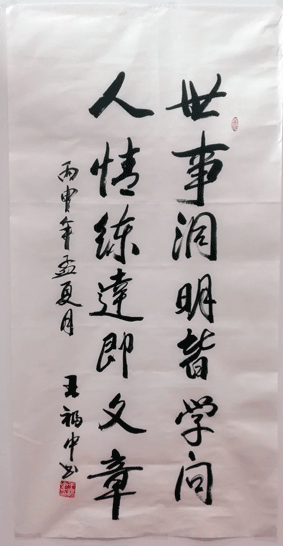 世事洞明皆学问
人情练達即文章
丙申年孟夏月
王福中书